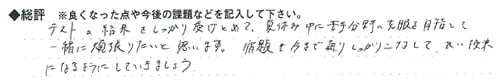 ◆総評 ※良くなった点や今後の課題などを記入して下さい。
テストの結果をしっかり受けとめて、夏休み中に苦手分野の克服を目指して
一緒に頑張りたいと思います。宿題も今まで通りしっかりこなして、良い結果
になるようにしていきましょう